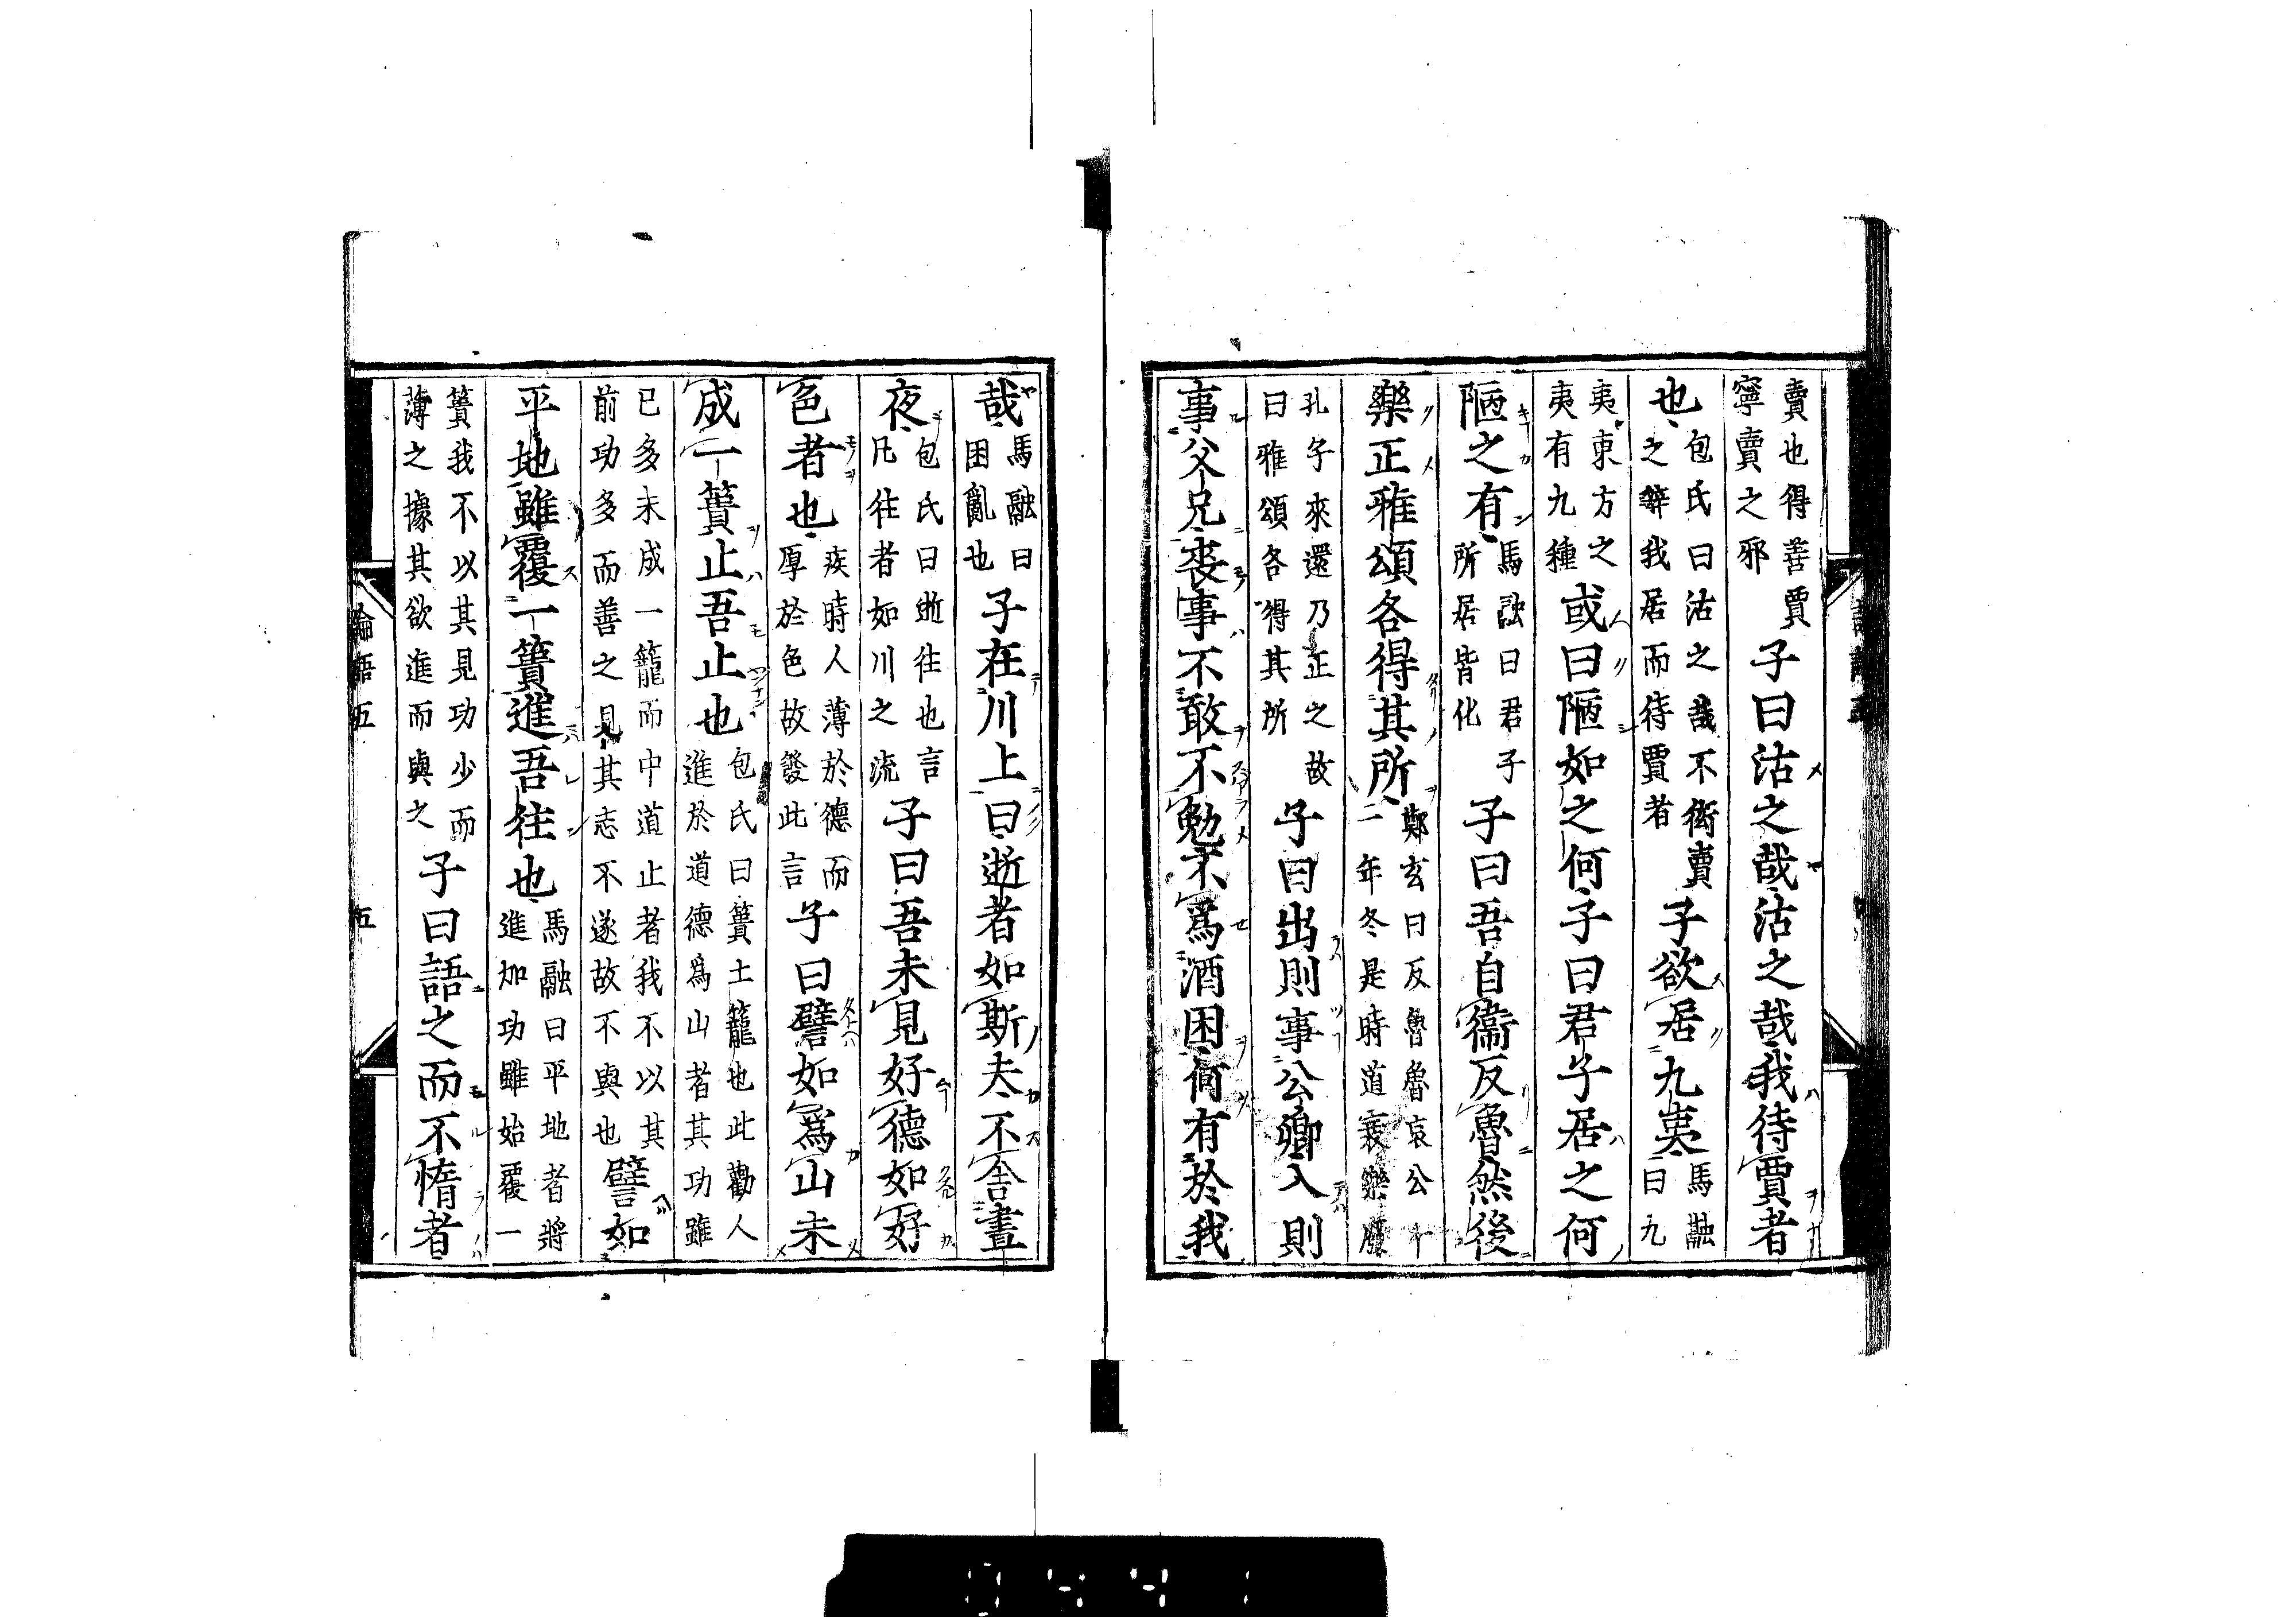 賣也得善賈寧賣之邪子曰沽之哉沽之哉我待賈者
也包氏曰沽之哉不衒賣之辭我居而待賈者子欲居九夷馬融曰九
夷東方之夷有九種或曰陋如之何子曰君子居之何
陋之有馬融曰君子所居皆化子曰吾自衞反魯然後
樂正雅頌各得其所鄭玄曰反魯魯哀公十二年冬是時道衰樂廢
孔子來還乃正之故曰雅頌各得其所子曰出則事公卿入則
事父兄喪事不敢不勉不爲酒困何有於我
哉馬融曰困亂也子在川上曰逝者如斯夫不舍晝
夜包氏曰逝往也言凡往者如川之流子曰吾未見好德如好
色者也疾時人薄於德而厚於色故發此言子曰譬如爲山未
成一簣止吾止也包氏曰簣土籠也此勸人進於道德爲山者其功雖
已多未成一籠而中道止者我不以其前功多而善之見其志不遂故不與也譬如
平地雖覆一簣進吾往也馬融曰平地者將進加功雖始覆一
簣我不以其見功少而薄之據其欲進而與之子曰語之而不惰者
論語五 五